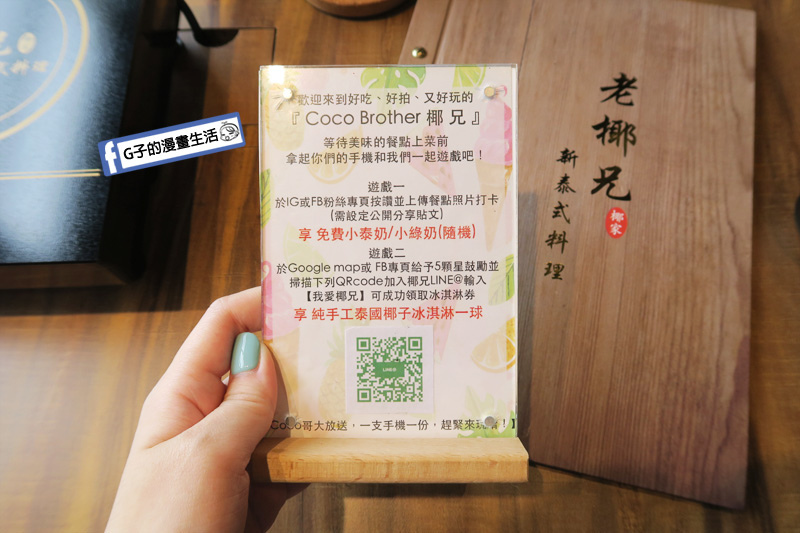 歡迎來到好吃、好拍、又好玩的
『 Coco Brother 椰 兄 』
等待美味的餐點上菜前
拿起你們的手機和我們一起遊戲吧！
遊戲一
於IG或FB粉絲專頁按讚並上傳餐點照片打卡
(需設定公開分享貼文)
享 免費小泰奶/小綠奶(隨機)
遊戲二
於Google map或 FB專頁給予5顆星鼓勵並
掃描下列QRcode加入椰兄LINE@輸入
【我愛椰兄】可成功領取冰淇淋券
享 純手工泰國椰子冰淇淋一球
LINE@
Coco哥大放送，一支手機一份，趕緊來玩唷！】
老椰兄
新泰式料理
椰家
G子的漫畫生活